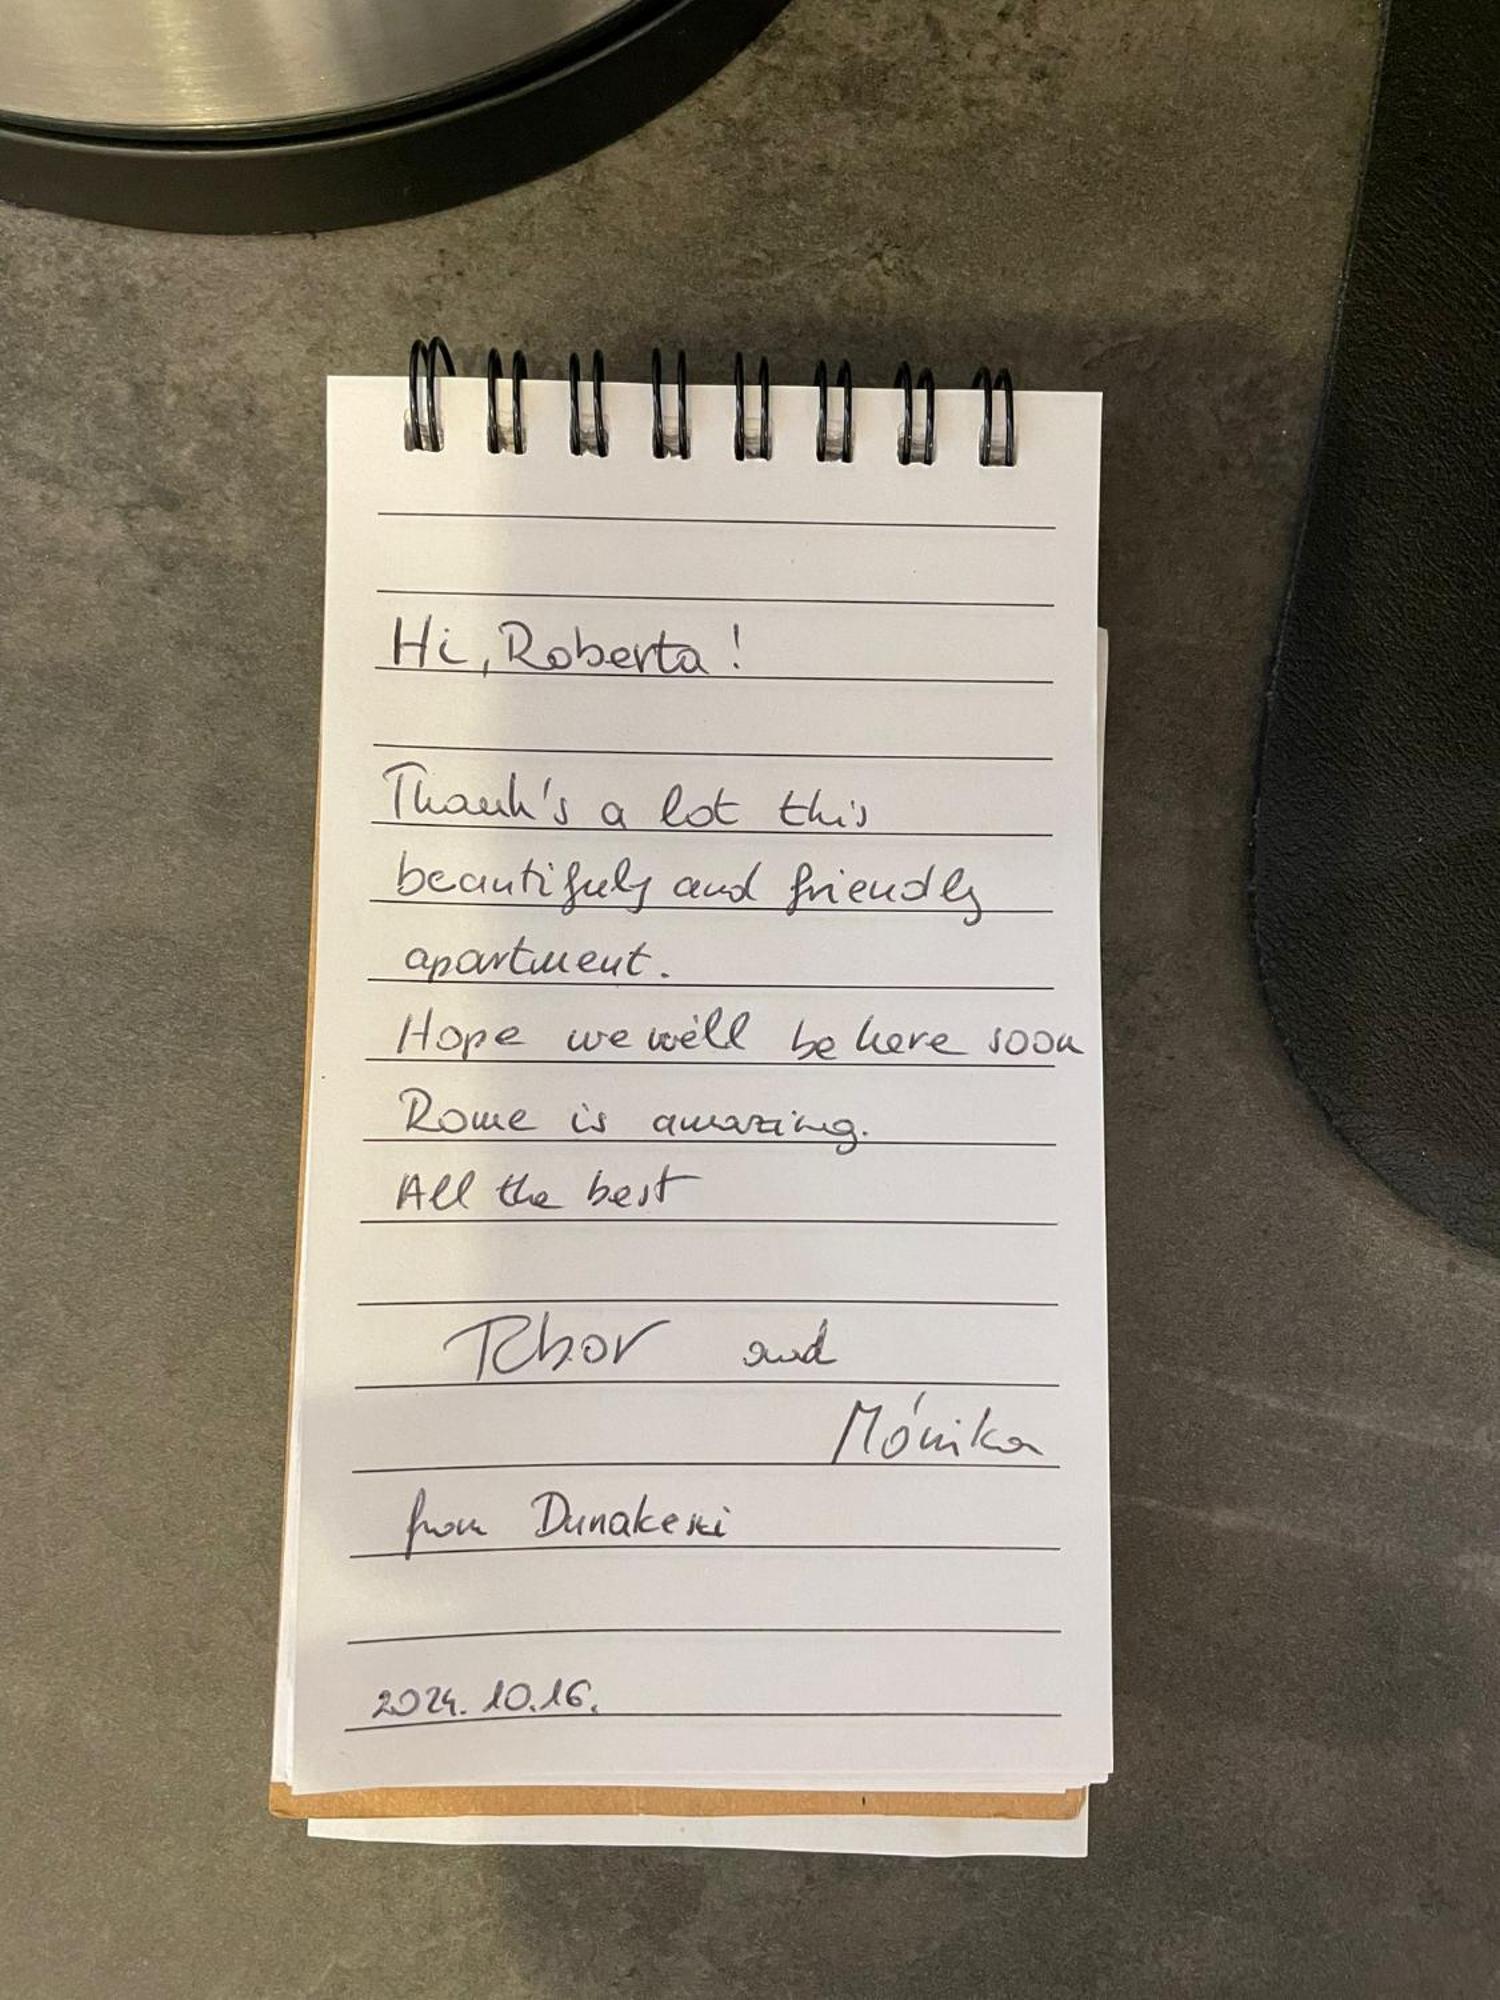 Hi, Roberta!
Thank's a lot this
beautifuly and friendly
apartment.
Hope we we'll be here soon
Rome is amazing.
All the best
Tibor and
Mónika
from Dunakeszi
2024. 10.16.